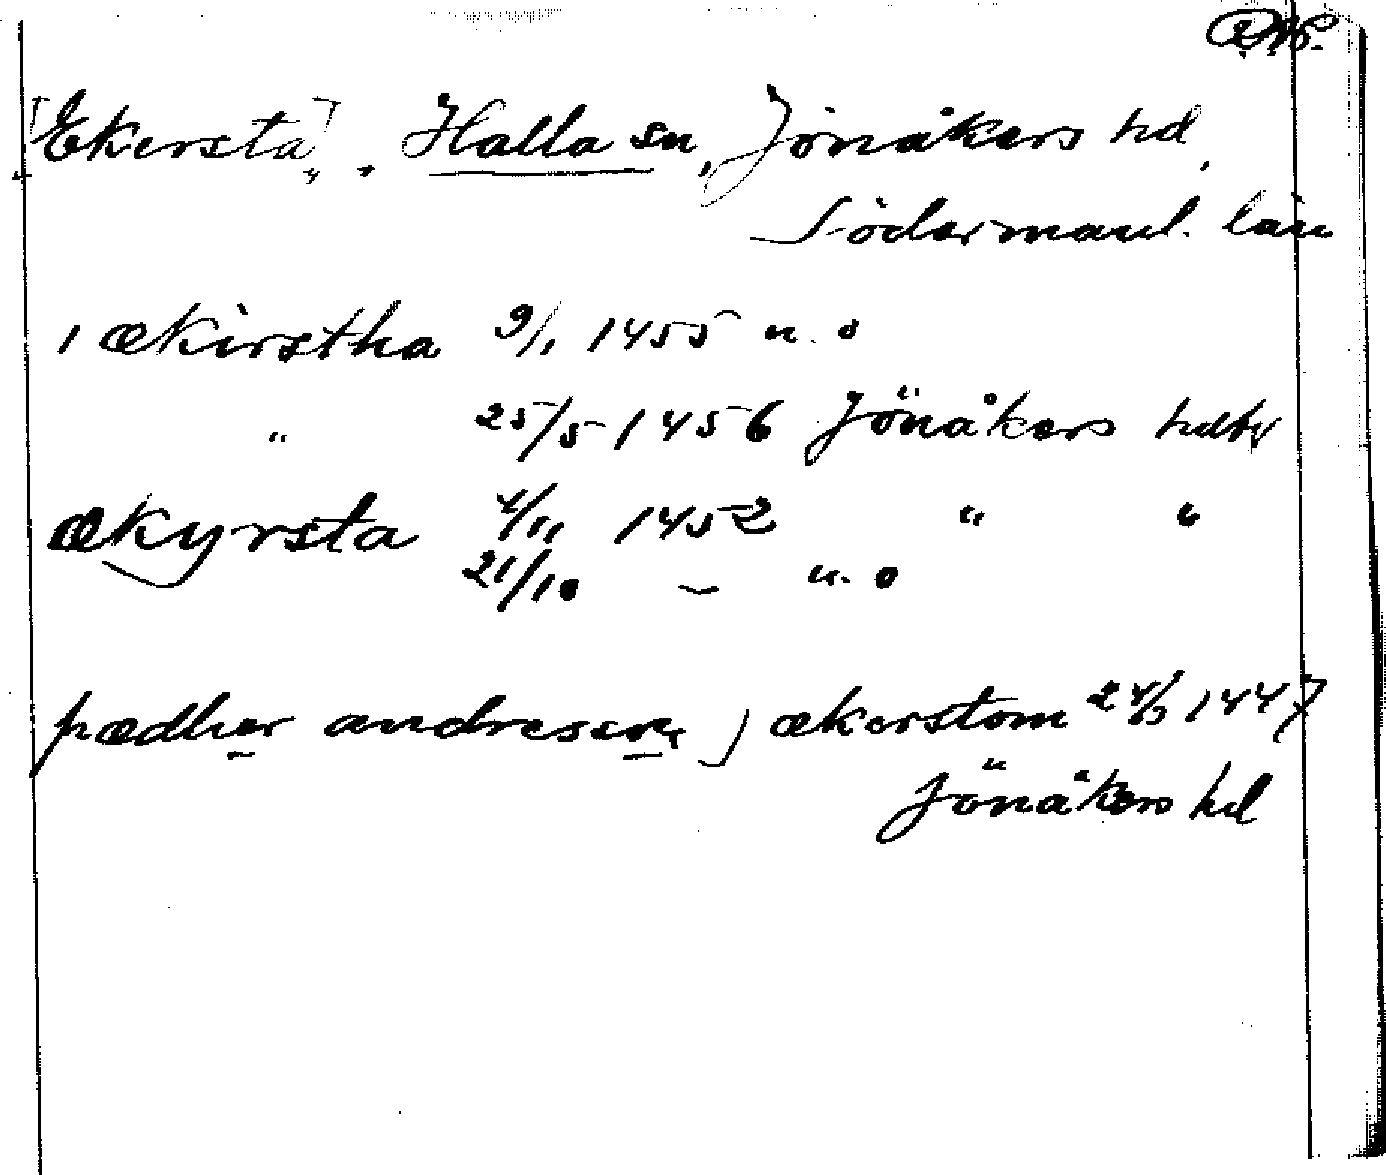 [Ekersta], Halla sn, Jönåkers hd,
Södermanl. län
i ækirstha 9/1 1455 u. o
" 25/5 1456 Jönåkers hdbr
ækyrsta 4/11 1452 " "
21/10 – u. o
pædher andresson j ækerstom 24/3 1447
Jönåkers hd